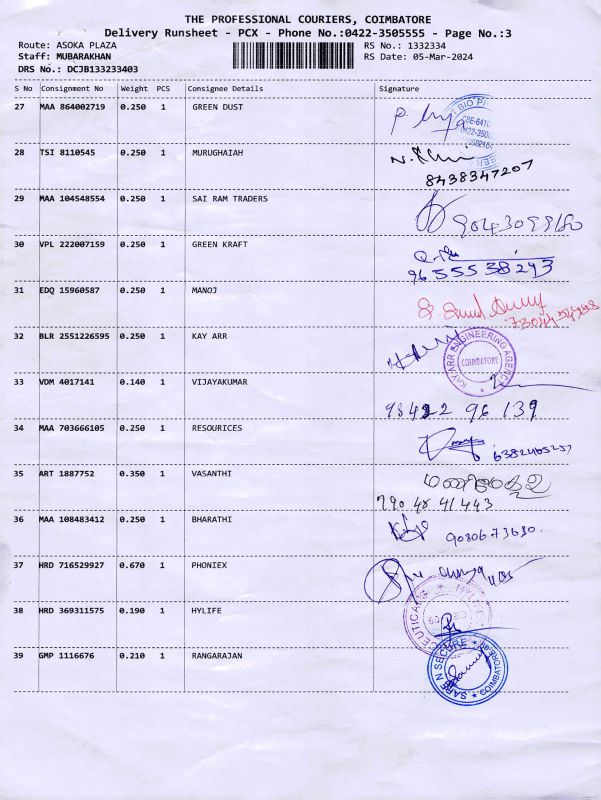 THE PROFESSIONAL COURIERS, COIMBATORE
Delivery Runsheet - PCX - Phone No.:0422-3505555 - Page No.:3
Route: ASOKA PLAZA RS No.: 1332334
Staff: MUBARAKHAN RS Date: 05-Mar-2024
DRS No.: DCJB133233403
S No Consignment No Weight PCS Consignee Details Signature
27 MAA 864002719 0.250 1 GREEN DUST
28 TSI 8110545 0.250 1 MURUGHAIAH
8438347207
29 MAA 104548554 0.250 1 SAI RAM TRADERS
30 VPL 222007159 0.250 1 GREEN KRAFT
9655538293
31 EDQ 15960587 0.250 1 MANOJ
32 BLR 2551226595 0.250 1 KAY ARR
KAYARR ENGINEERING AGENCY
COIMBATORE
33 VDM 4017141 0.140 1 VIJAYAKUMAR
98422 96139
34 MAA 703666105 0.250 1 RESOURICES
35 ART 1887752 0.350 1 VASANTHI
790 48 41443
36 MAA 108483412 0.250 1 BHARATHI
9080673630.
37 HRD 716529927 0.670 1 PHONIEX
38 HRD 369311575 0.190 1 HYLIFE
39 GMP 1116676 0.210 1 RANGARAJAN
SAFE N SECURE
COIMBATORE